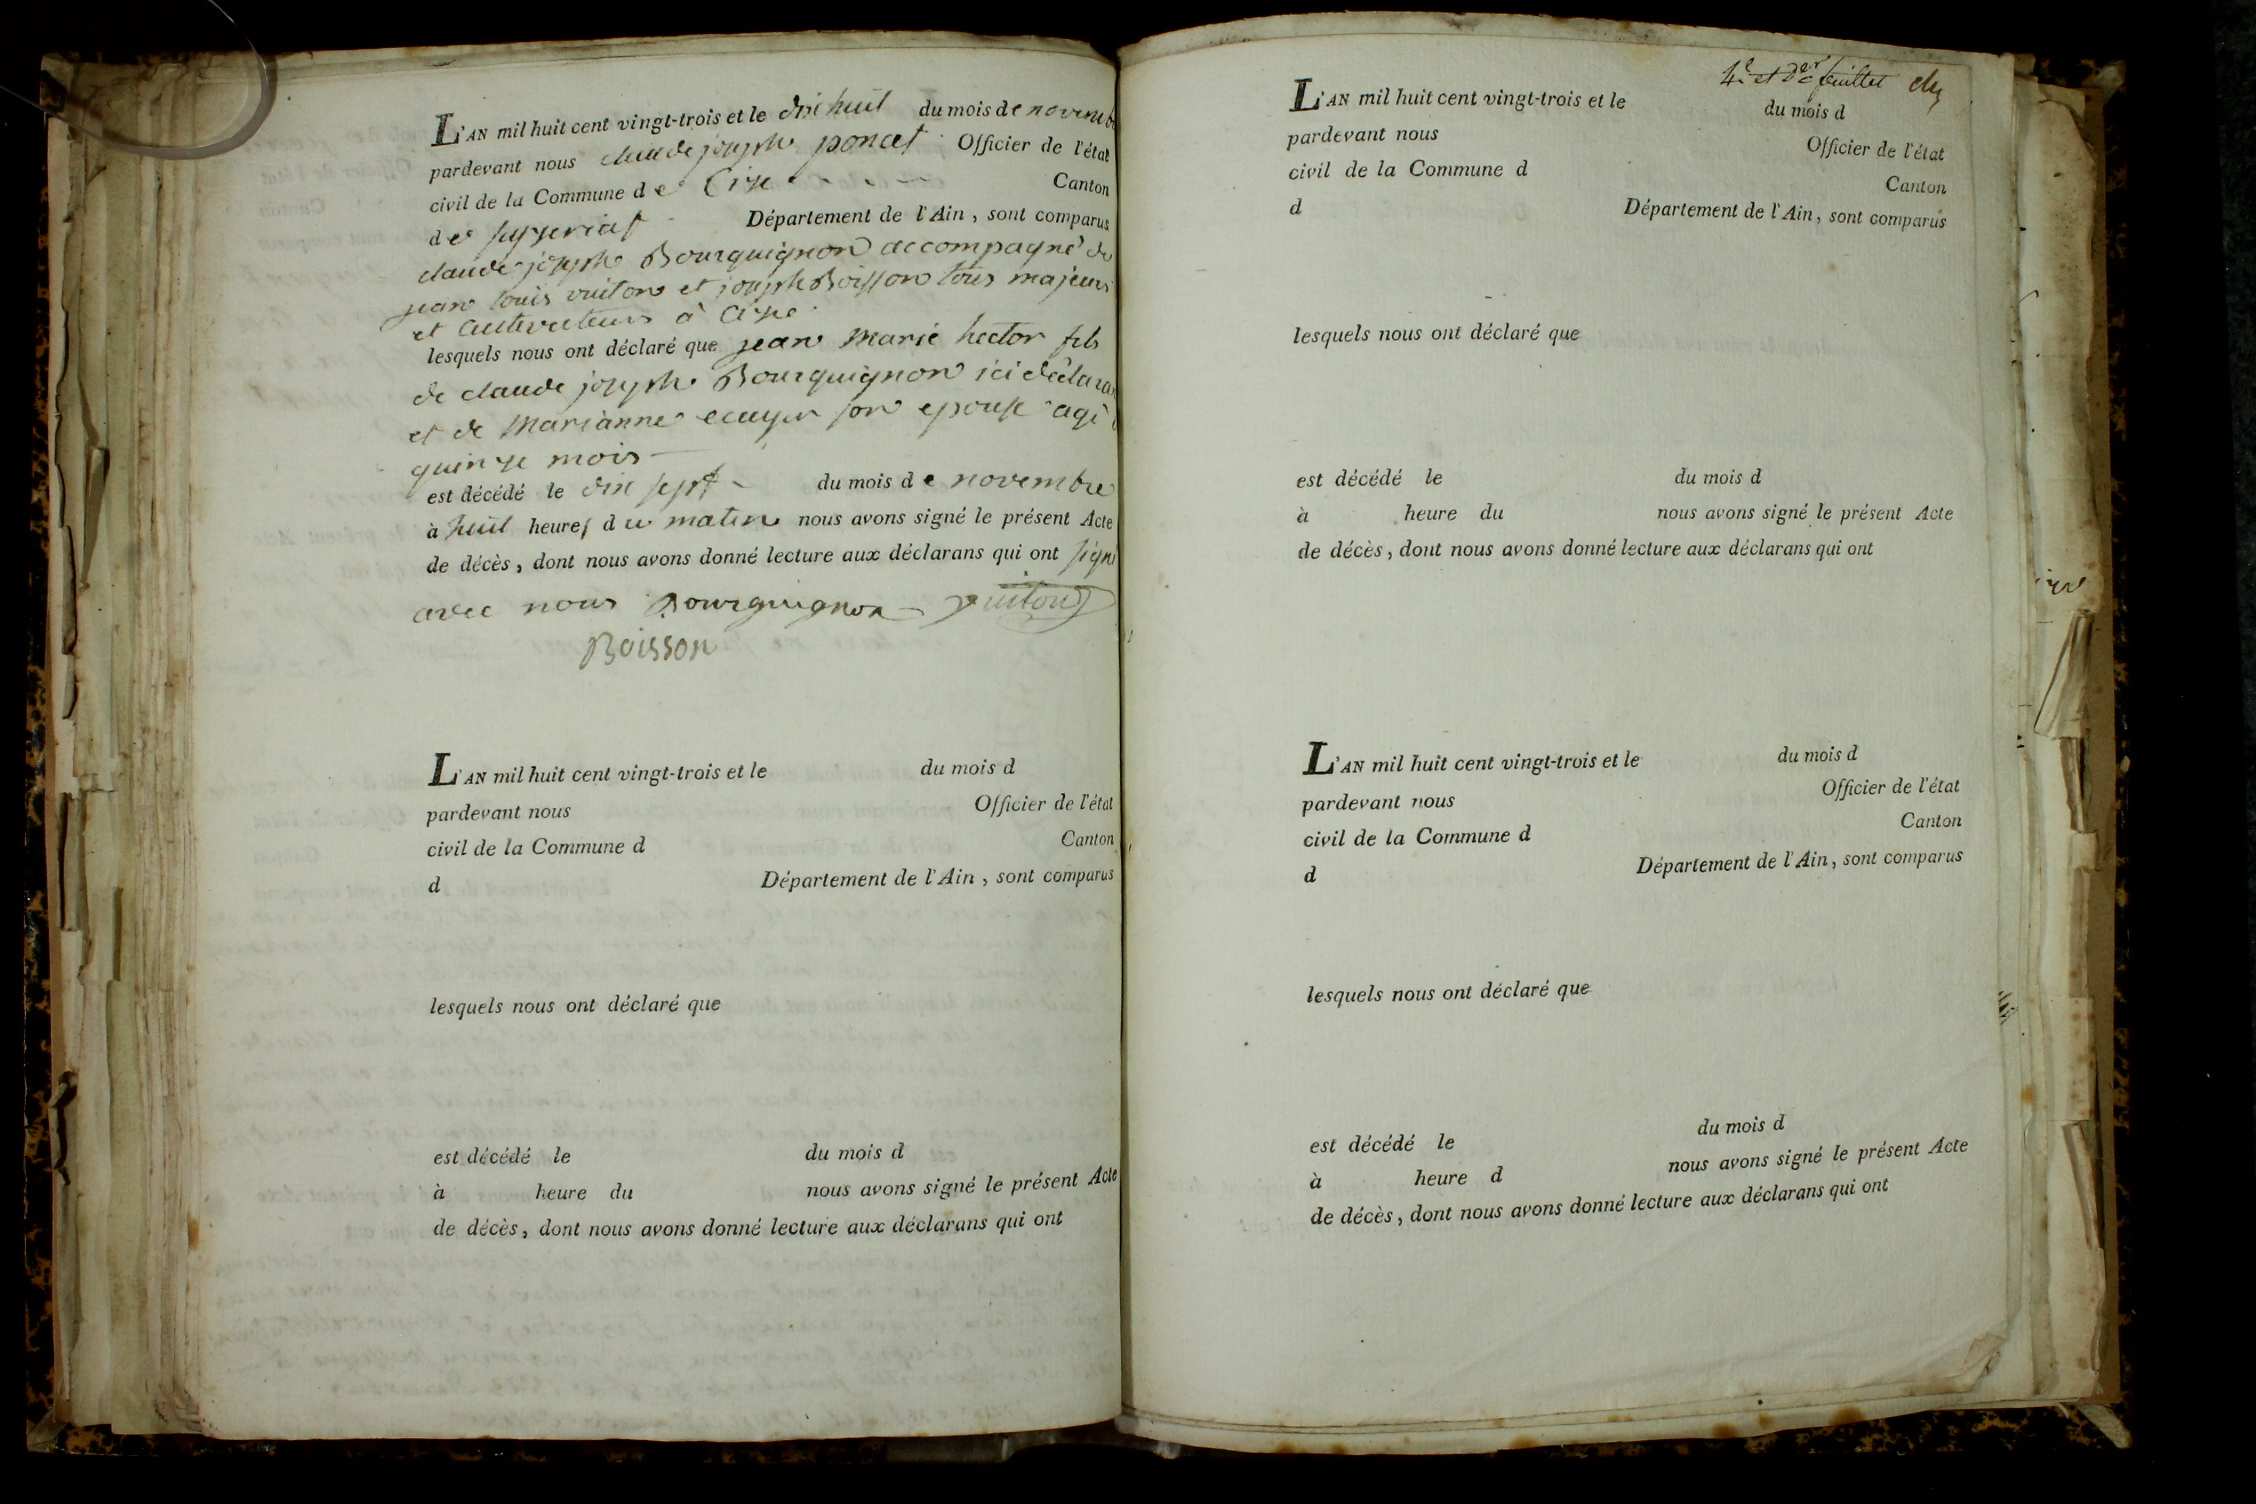 L'AN mil huit cent vingt-trois et le dix huit du mois de novemb
pardevant nous claude joseph poncet Officier de l'état
civil de la Commune de Cize Canton
de Ceyzeriat Département de l'Ain, sont comparus
claude joseph Bourguignon accompagné de
jean louis vuiton et joseph Boisson tous majeurs
et Cultivateurs à Cize
lesquels nous ont déclaré que jean Marie hector fils
de claude joseph Bourguignon ici déclara
et de Marianne ecuyer son epouse agé
quinze mois
est décédé le dix sept du mois de novembre
à huit heures du matin nous avons signé le présent Acte
de décès, dont nous avons donné lecture aux déclarans qui ont signé
avec nous Bourguignon vuiton
Boisson
L'AN mil huit cent vingt-trois et le du mois d
pardevant nous Officier de l'état
civil de la Commune d Canton
d Département de l'Ain, sont comparus
lesquels nous ont déclaré que
est décédé le du mois d
à heure du nous avons signé le présent Acte
de décès, dont nous avons donné lecture aux déclarans qui ont
4e et der feuillet
L'AN mil huit cent vingt-trois et le du mois d
pardevant nous Officier de l'état
civil de la Commune d Canton
d Département de l'Ain, sont comparus
lesquels nous ont déclaré que
est décédé le du mois d
à heure du nous avons signé le présent Acte
de décès, dont nous avons donné lecture aux déclarans qui ont
L'AN mil huit cent vingt-trois et le du mois d
pardevant nous Officier de l'état
civil de la Commune d Canton
d Département de l'Ain, sont comparus
lesquels nous ont déclaré que
est décédé le du mois d
à heure d nous avons signé le présent Acte
de décès, dont nous avons donné lecture aux déclarans qui ont